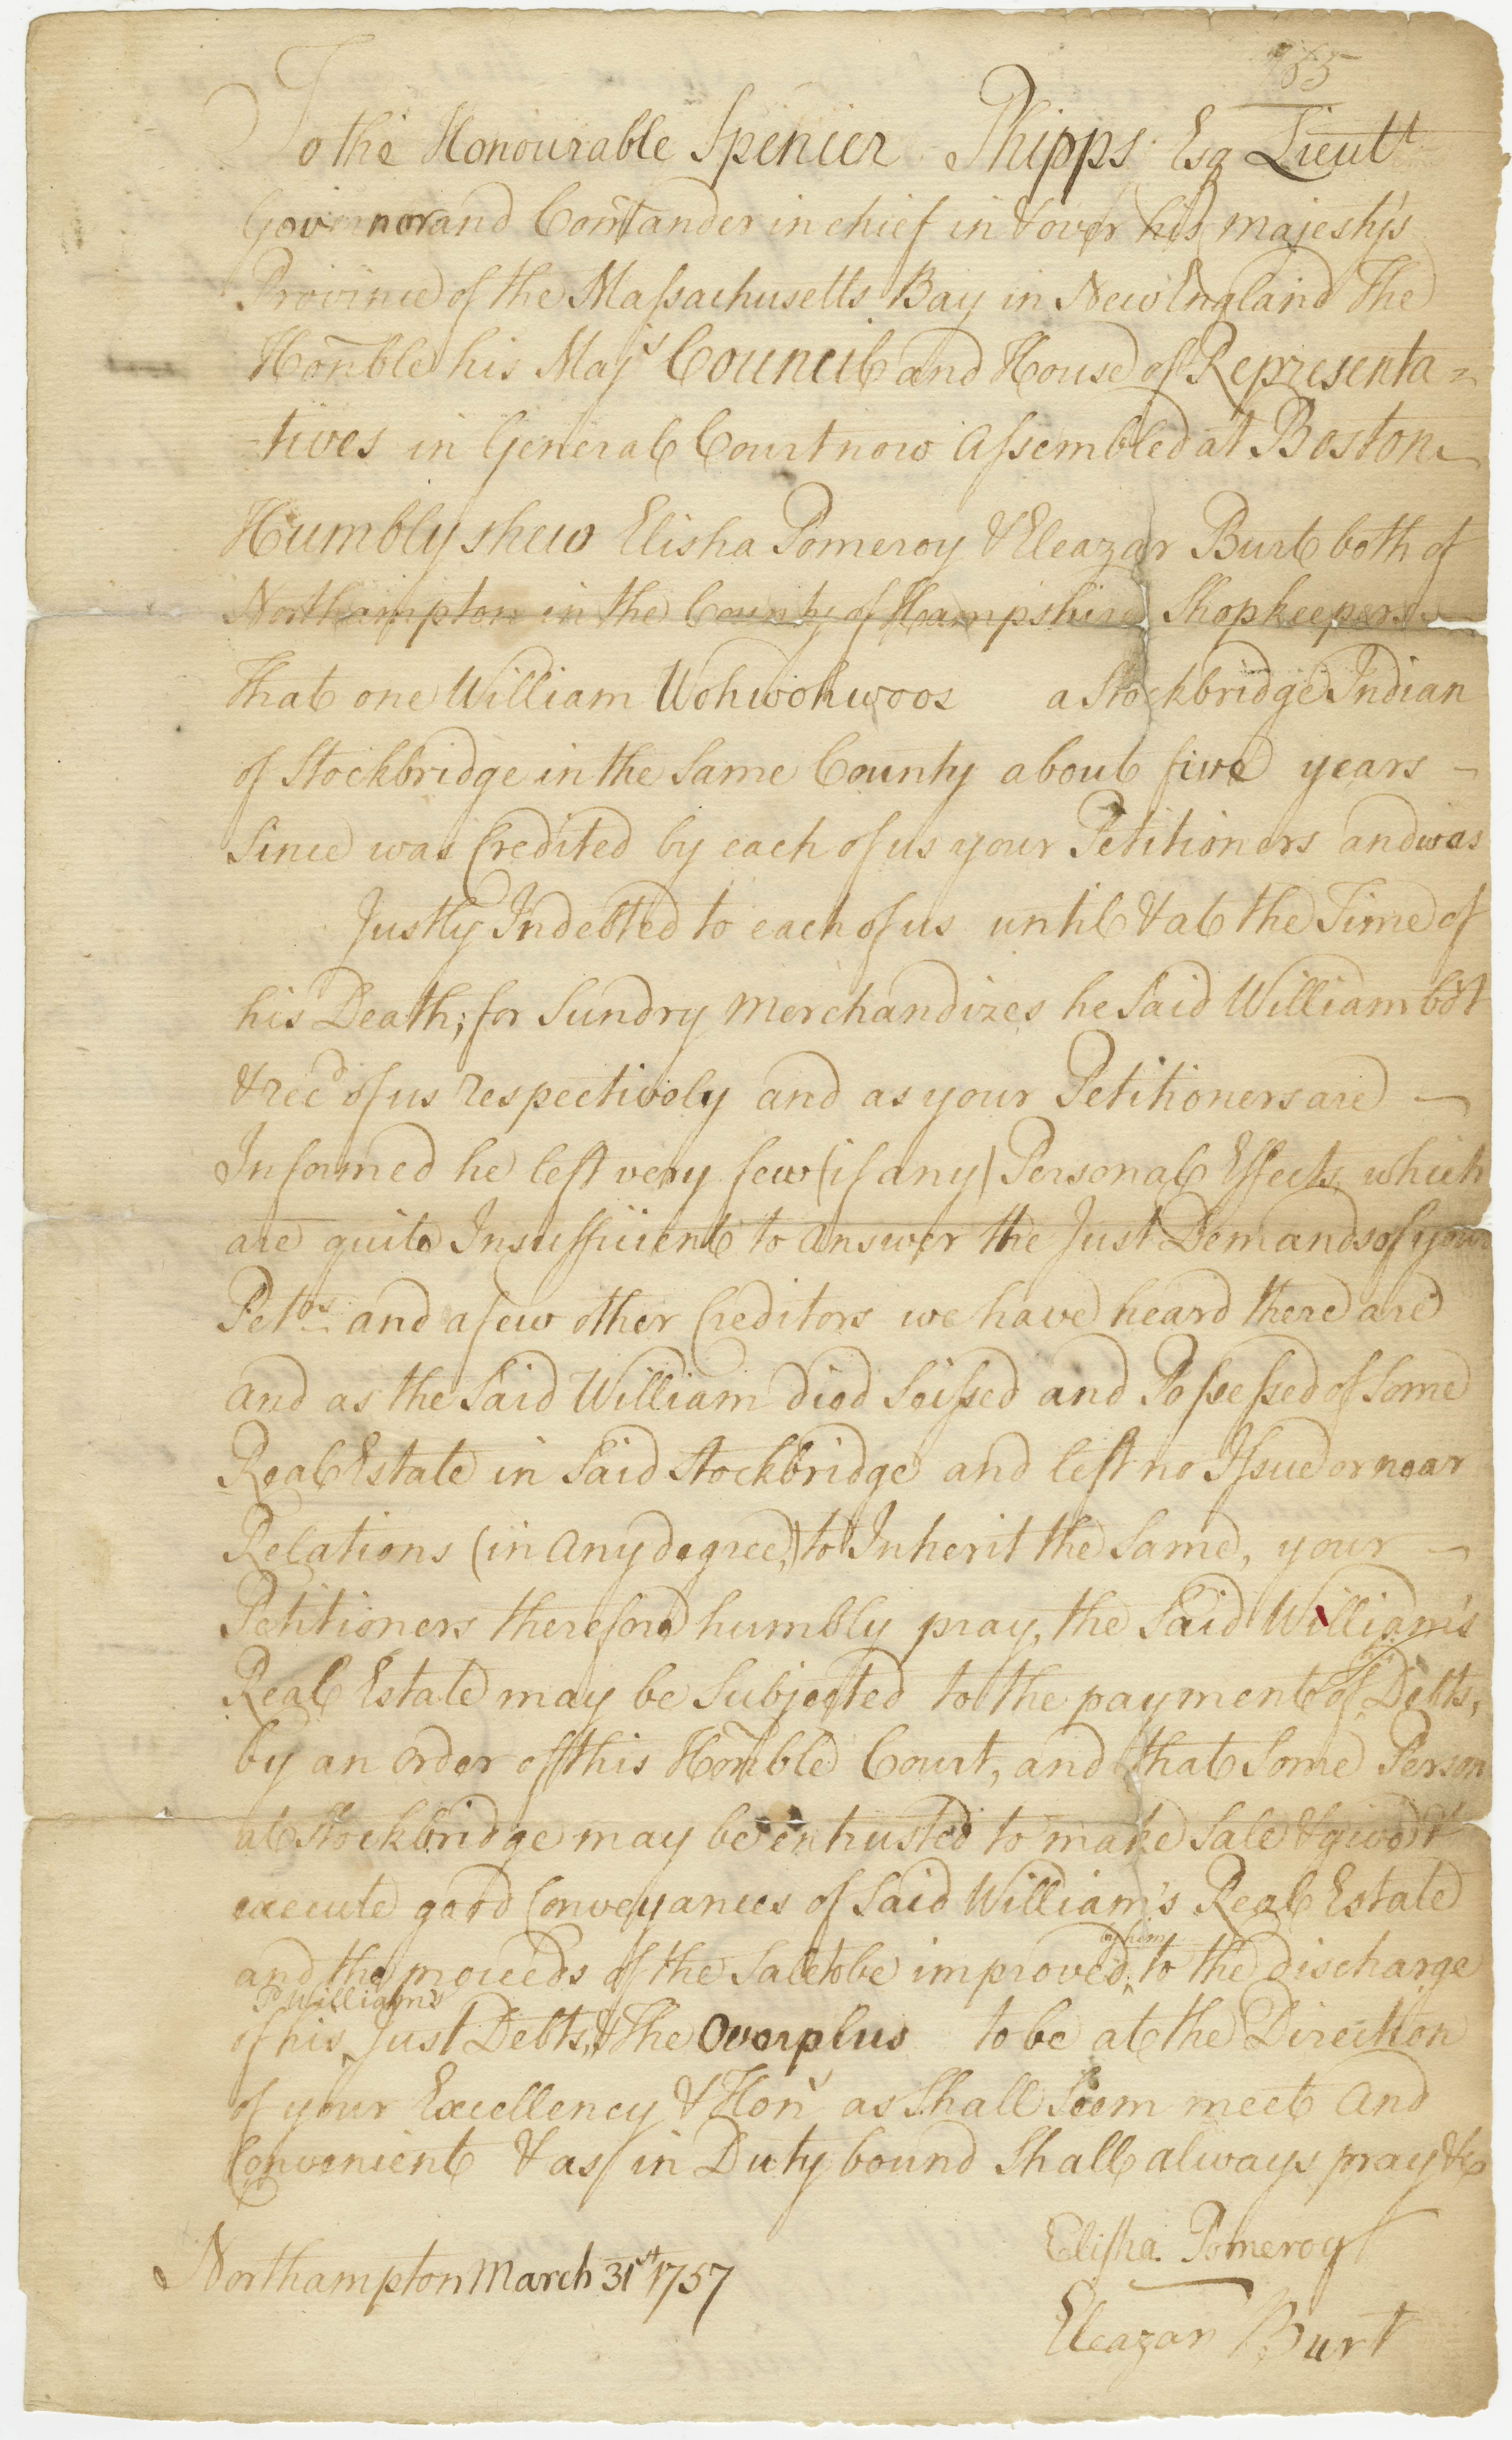 To the Honourable Spencer Phipps Esq Lieutt
Governor and Com̄ander in chief in & over his majesty's
Province of the Massachusetts Bay in New England The
Hon̄ble his Majs Council and House of Representa=
-tives in General Court now Assembled at Boston
Humbly shew Elisha Pomeroy & Eleazar Burt both of
Northampton in the County of Hampshire Shopkeepers
That one William Wohwohwoos a Stockbridge Indian
of Stockbridge in the Same County about five years -
Since was Credited by each of us your Petitioners and was
Justly Indebted to each of us until & at the Time of
his Death; for Sundry Merchandizes he Said William bo't
& recd of us respectively and as your Petitioners are -
Informed he left very few (if any) Personal Effects which
are quite Insufficient to Answer the Just Demands of your
Petrs and a few other Creditors we have heard there are
and as the Said William died Seissed and Possessed of Some
Real Estate in Said Stockbridge and left no Issue or near
Relations (in Any degree,) to Inherit the Same, your -
Petitioners therefore humbly pray, the Said William's
Real Estate may be Subjected to the payment of his Debts,
by an order of this Hon̄ble Court, and that Some Person
at Stockbridge may be entrusted to make Sale & give &
execute good Conveyances of Said William's Real Estate
and the proceeds of the Sale to be improved by him to the discharge
of his Sd William's Just Debts, & the Overplus to be at the Direction
of your Excellency & Honrs as Shall Seem meet and
Convenient & as in Duty bound Shall always pray &c
Elisha Pomeroy
Northampton March 31st 1757
Eleazar Burt